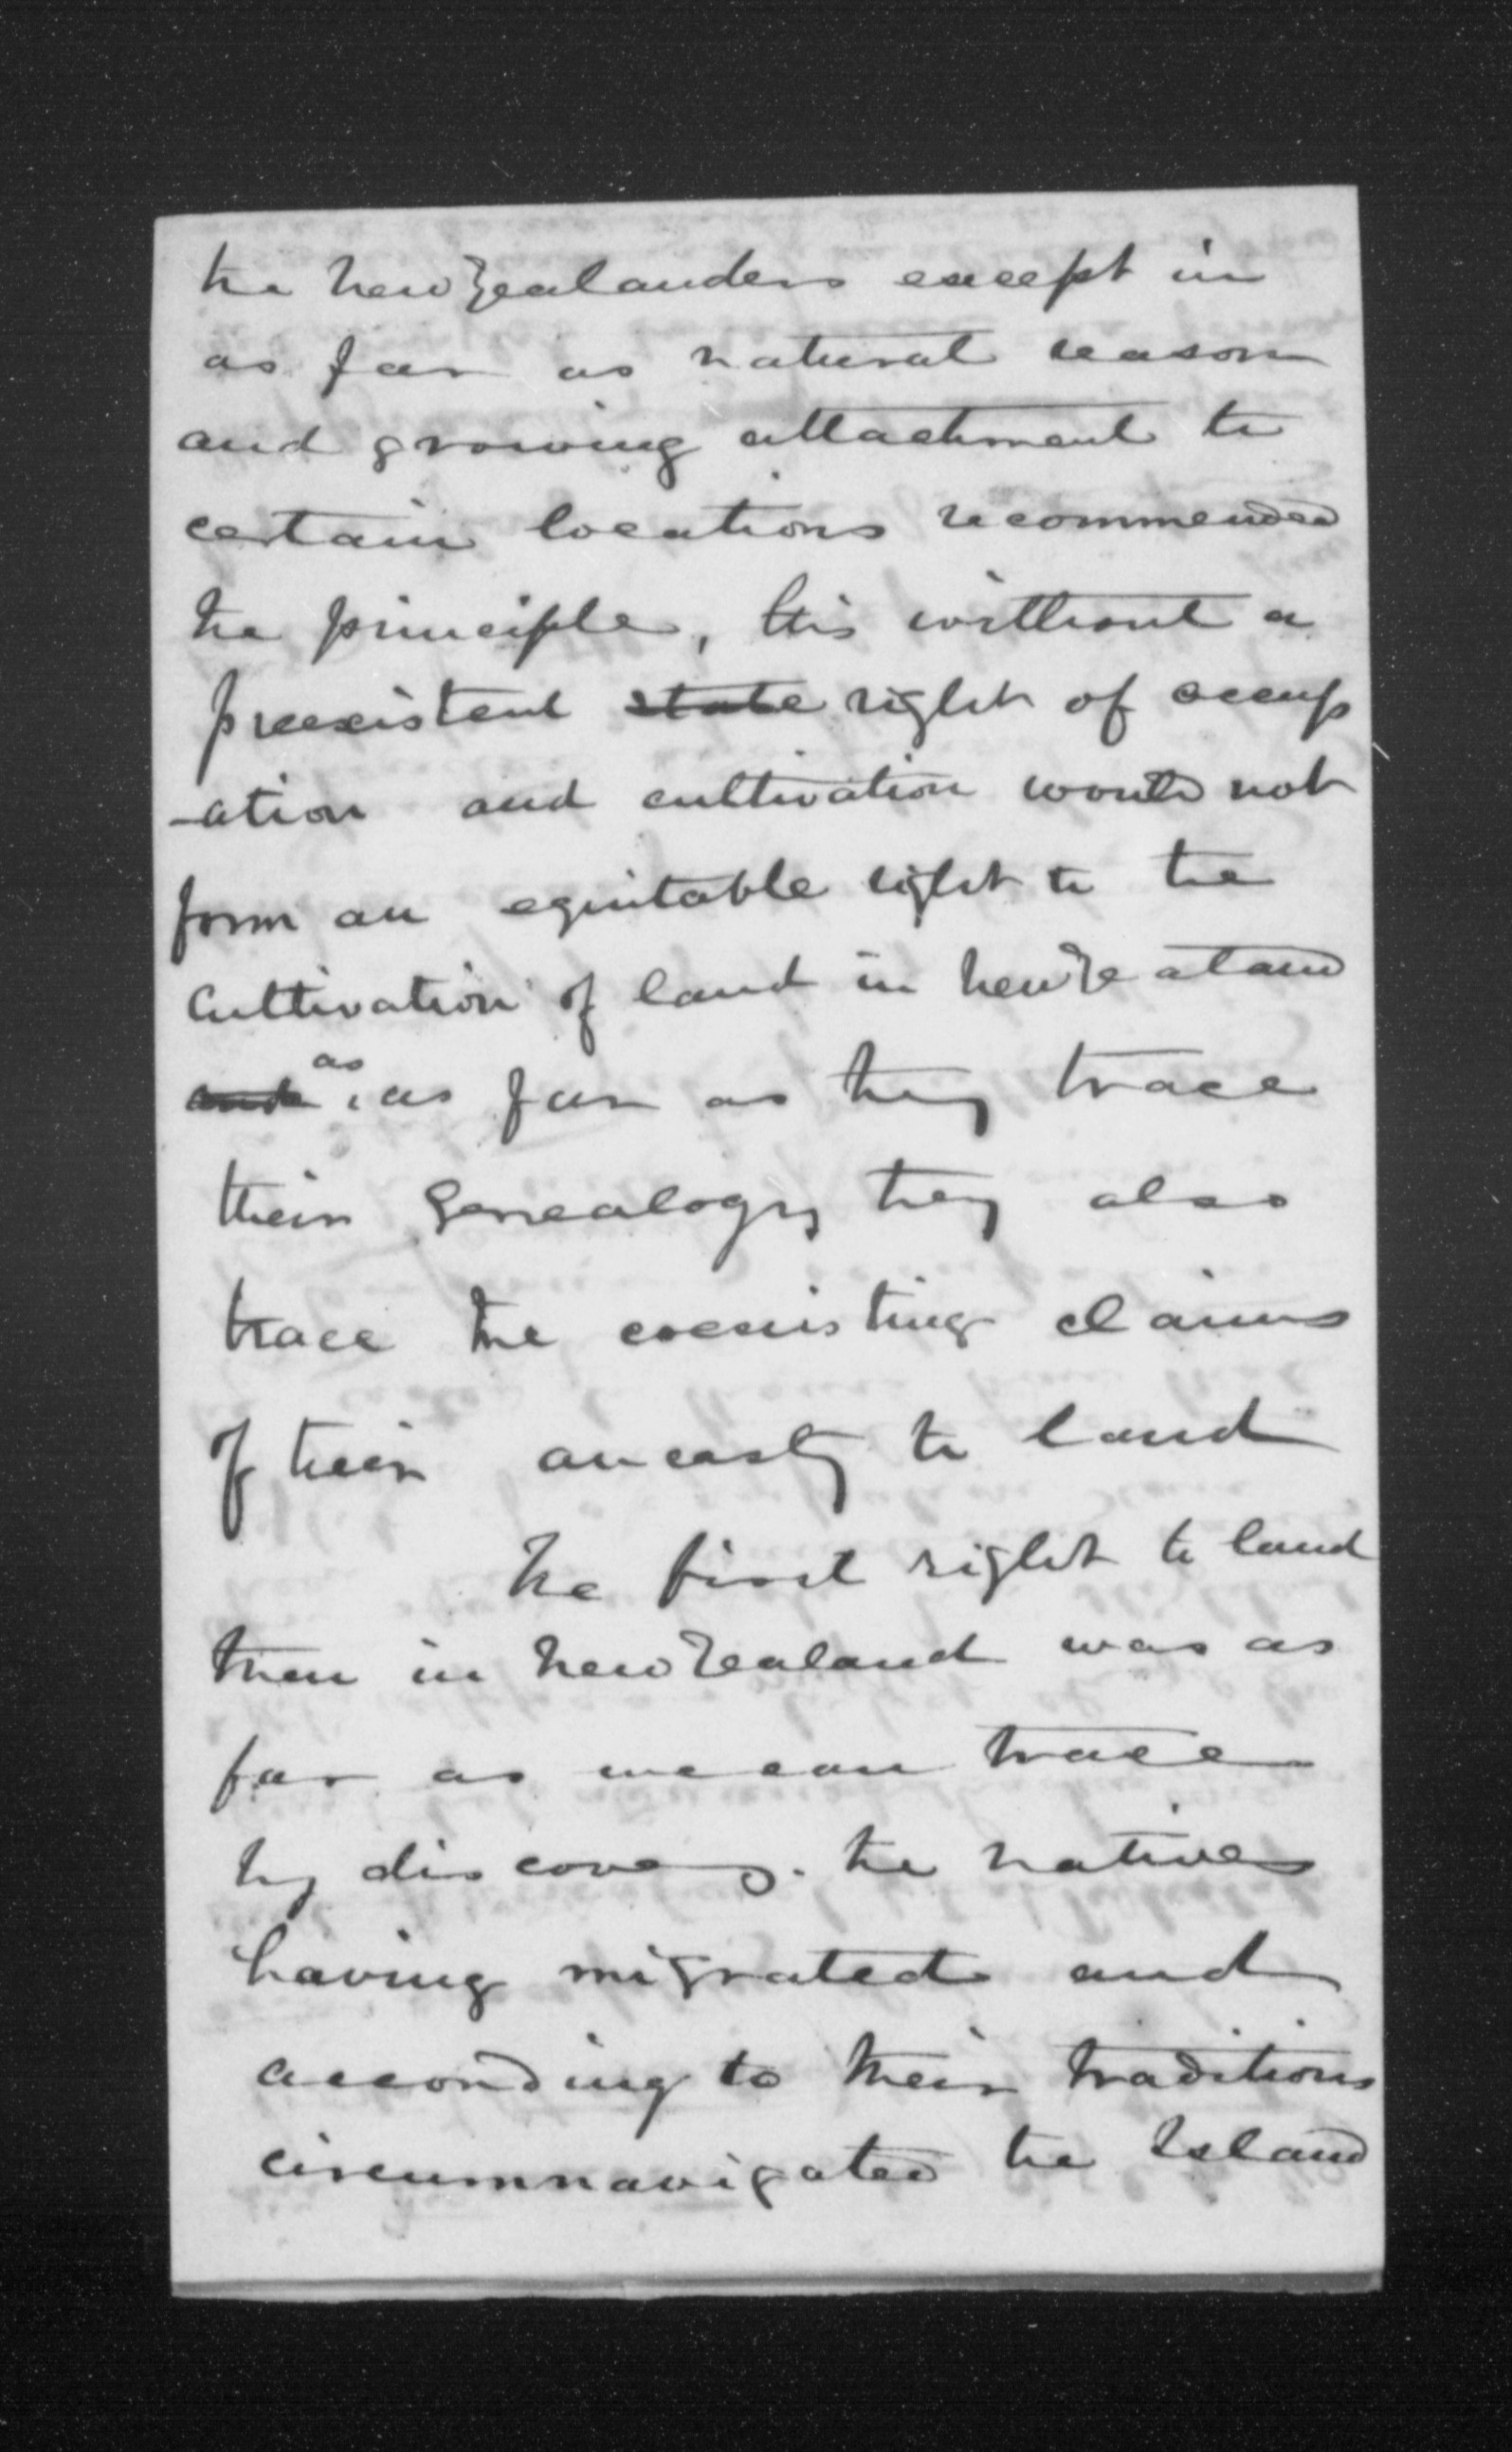 the New Zealanders except in
as far as natural reason
and growing attachment to
certain locations recommended
the principle, this without a
preexistent state right of occup
-ation and cultivation would not
form an equitable right to the
Cultivation of land in New Zealand
and as, as far as they trace
their Genealogy they also
trace the coexisting claims
of their ancesty to land
The first right to land
then in New Zealand was as
far as we can trace
by discovery. the natives
having migrated and
according to their traditions
circumnavigated the Island